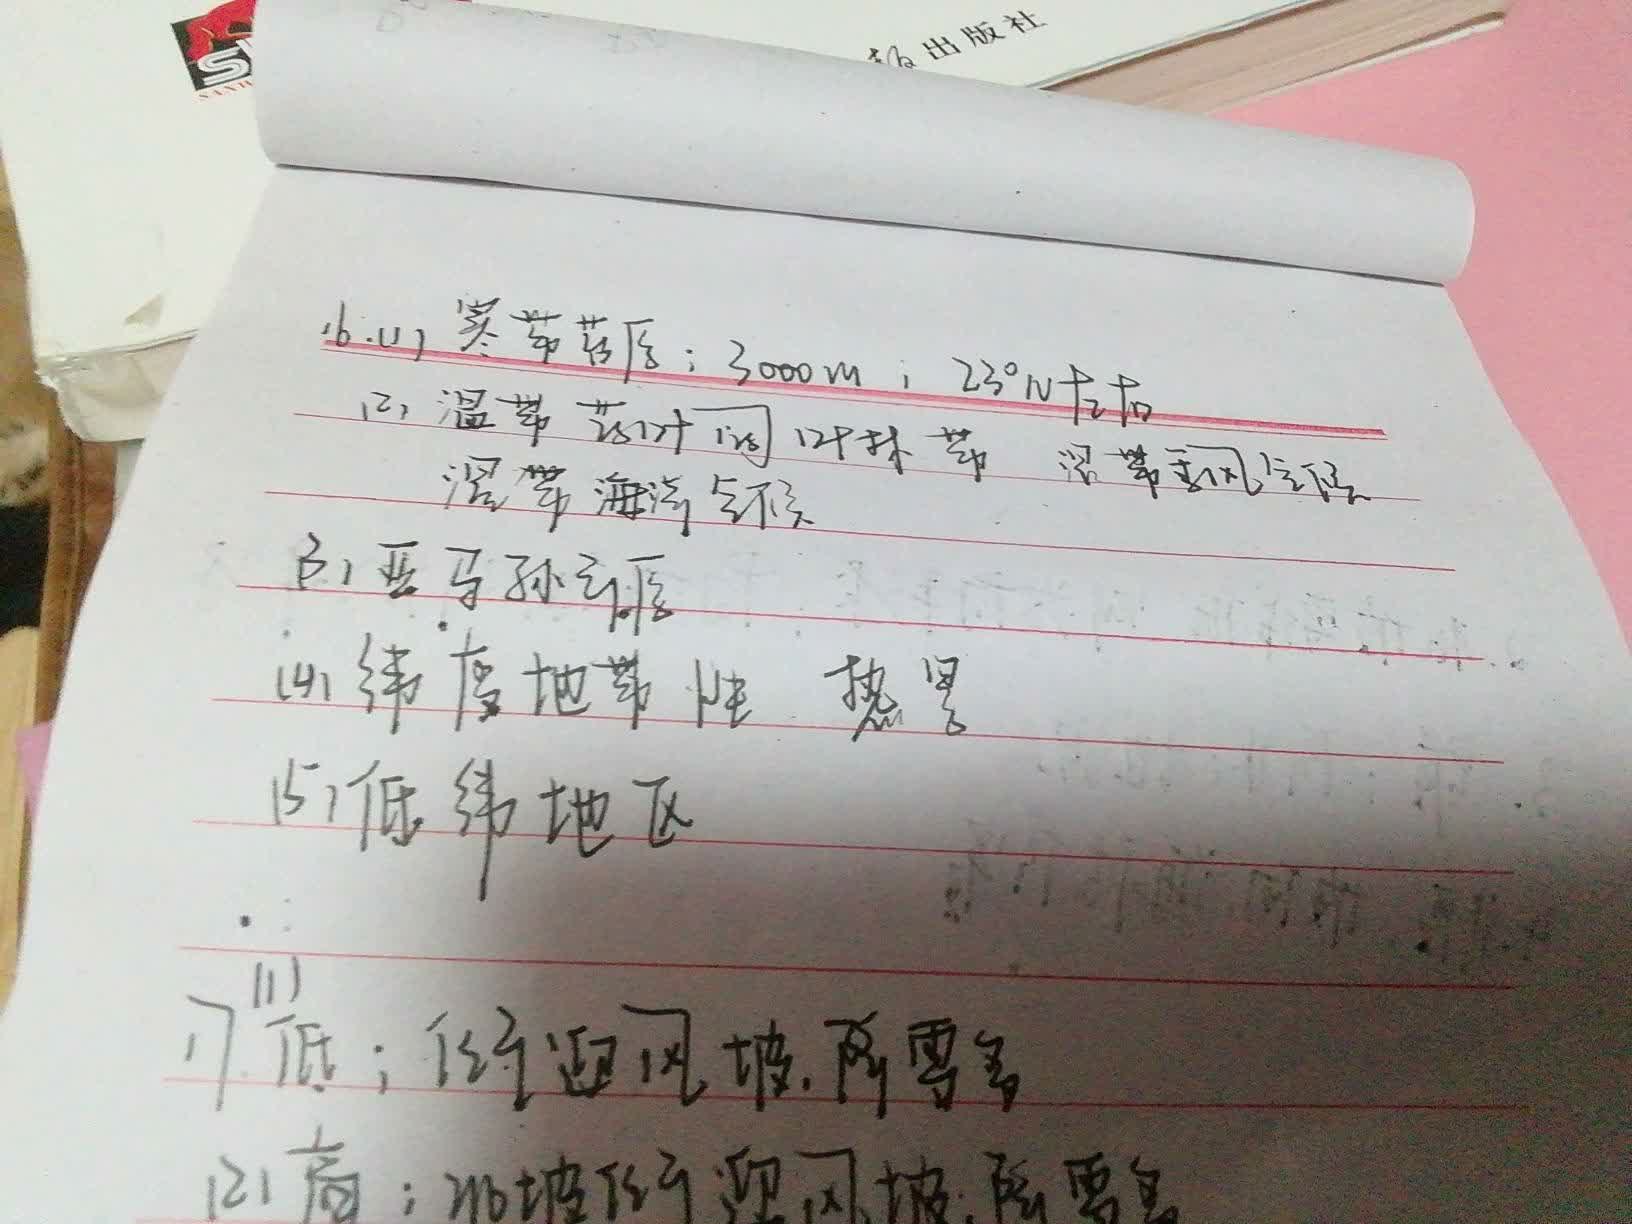 报出版社
16.(1) 寒带苔原;3000m;23°N左右
(2) 温带落叶阔叶林带 温带季风气候
温带海洋气候
(3) 亚马孙平原
(4) 纬度地带性 热量
(5) 低纬地区
(1)
17. 低;位于迎风坡,降雪多
(2) 高;北坡位于迎风坡,降雪多